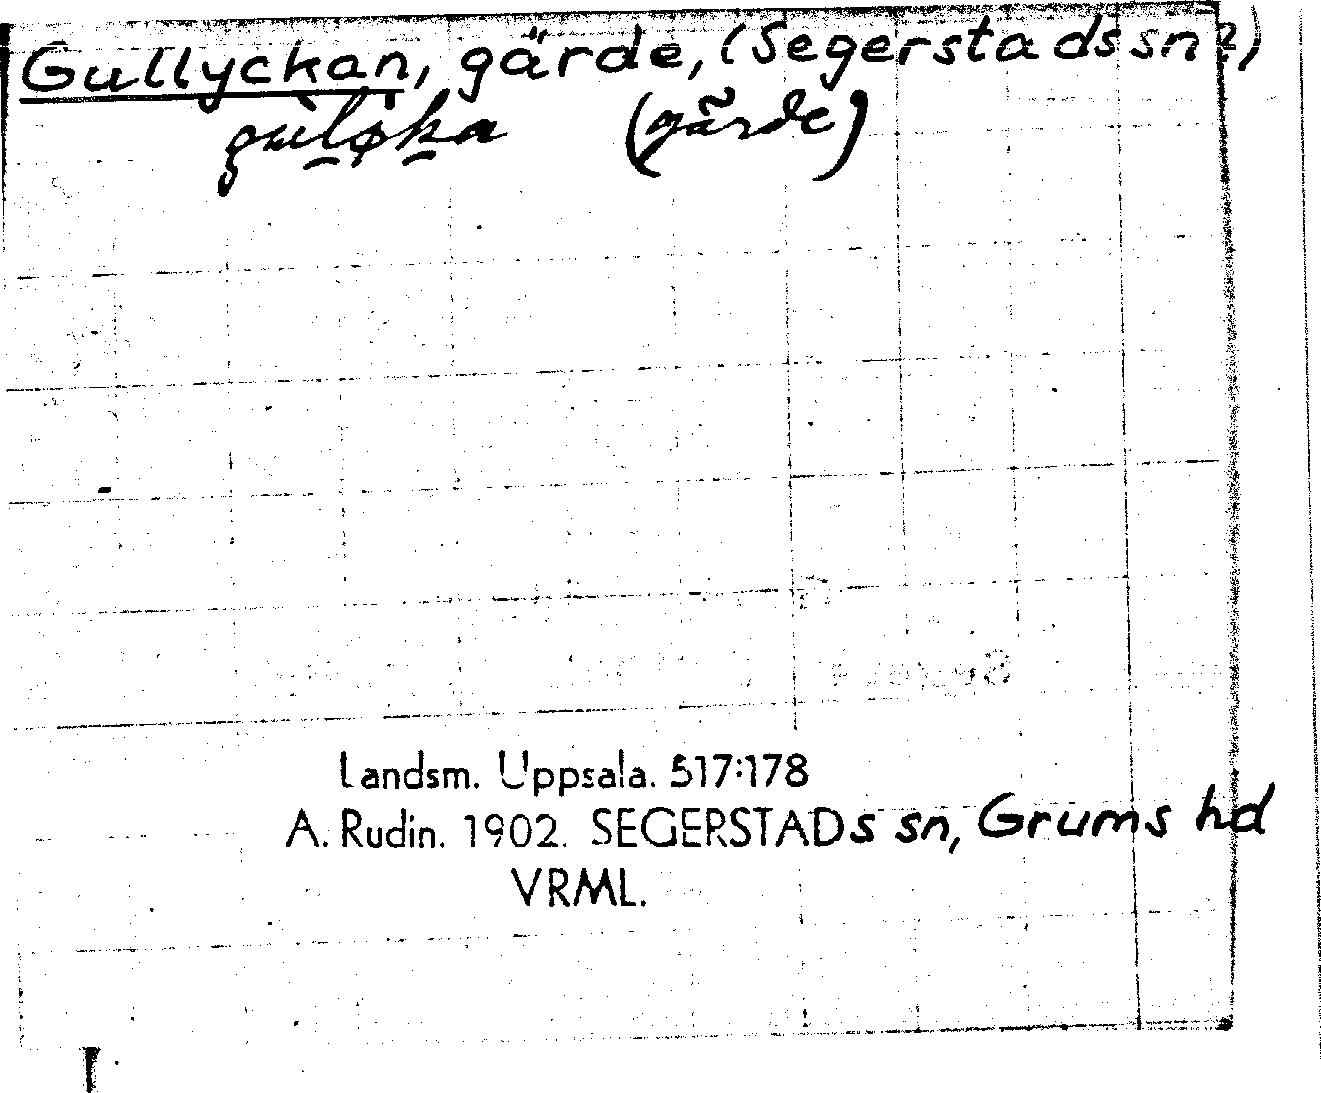 Gullyckan, gärde, (Segerstads sn?)
guløka (gärde)
Landsm. Uppsala. 517:178
A. Rudin. 1902. SEGERSTADs sn, Grums hd
VRML.